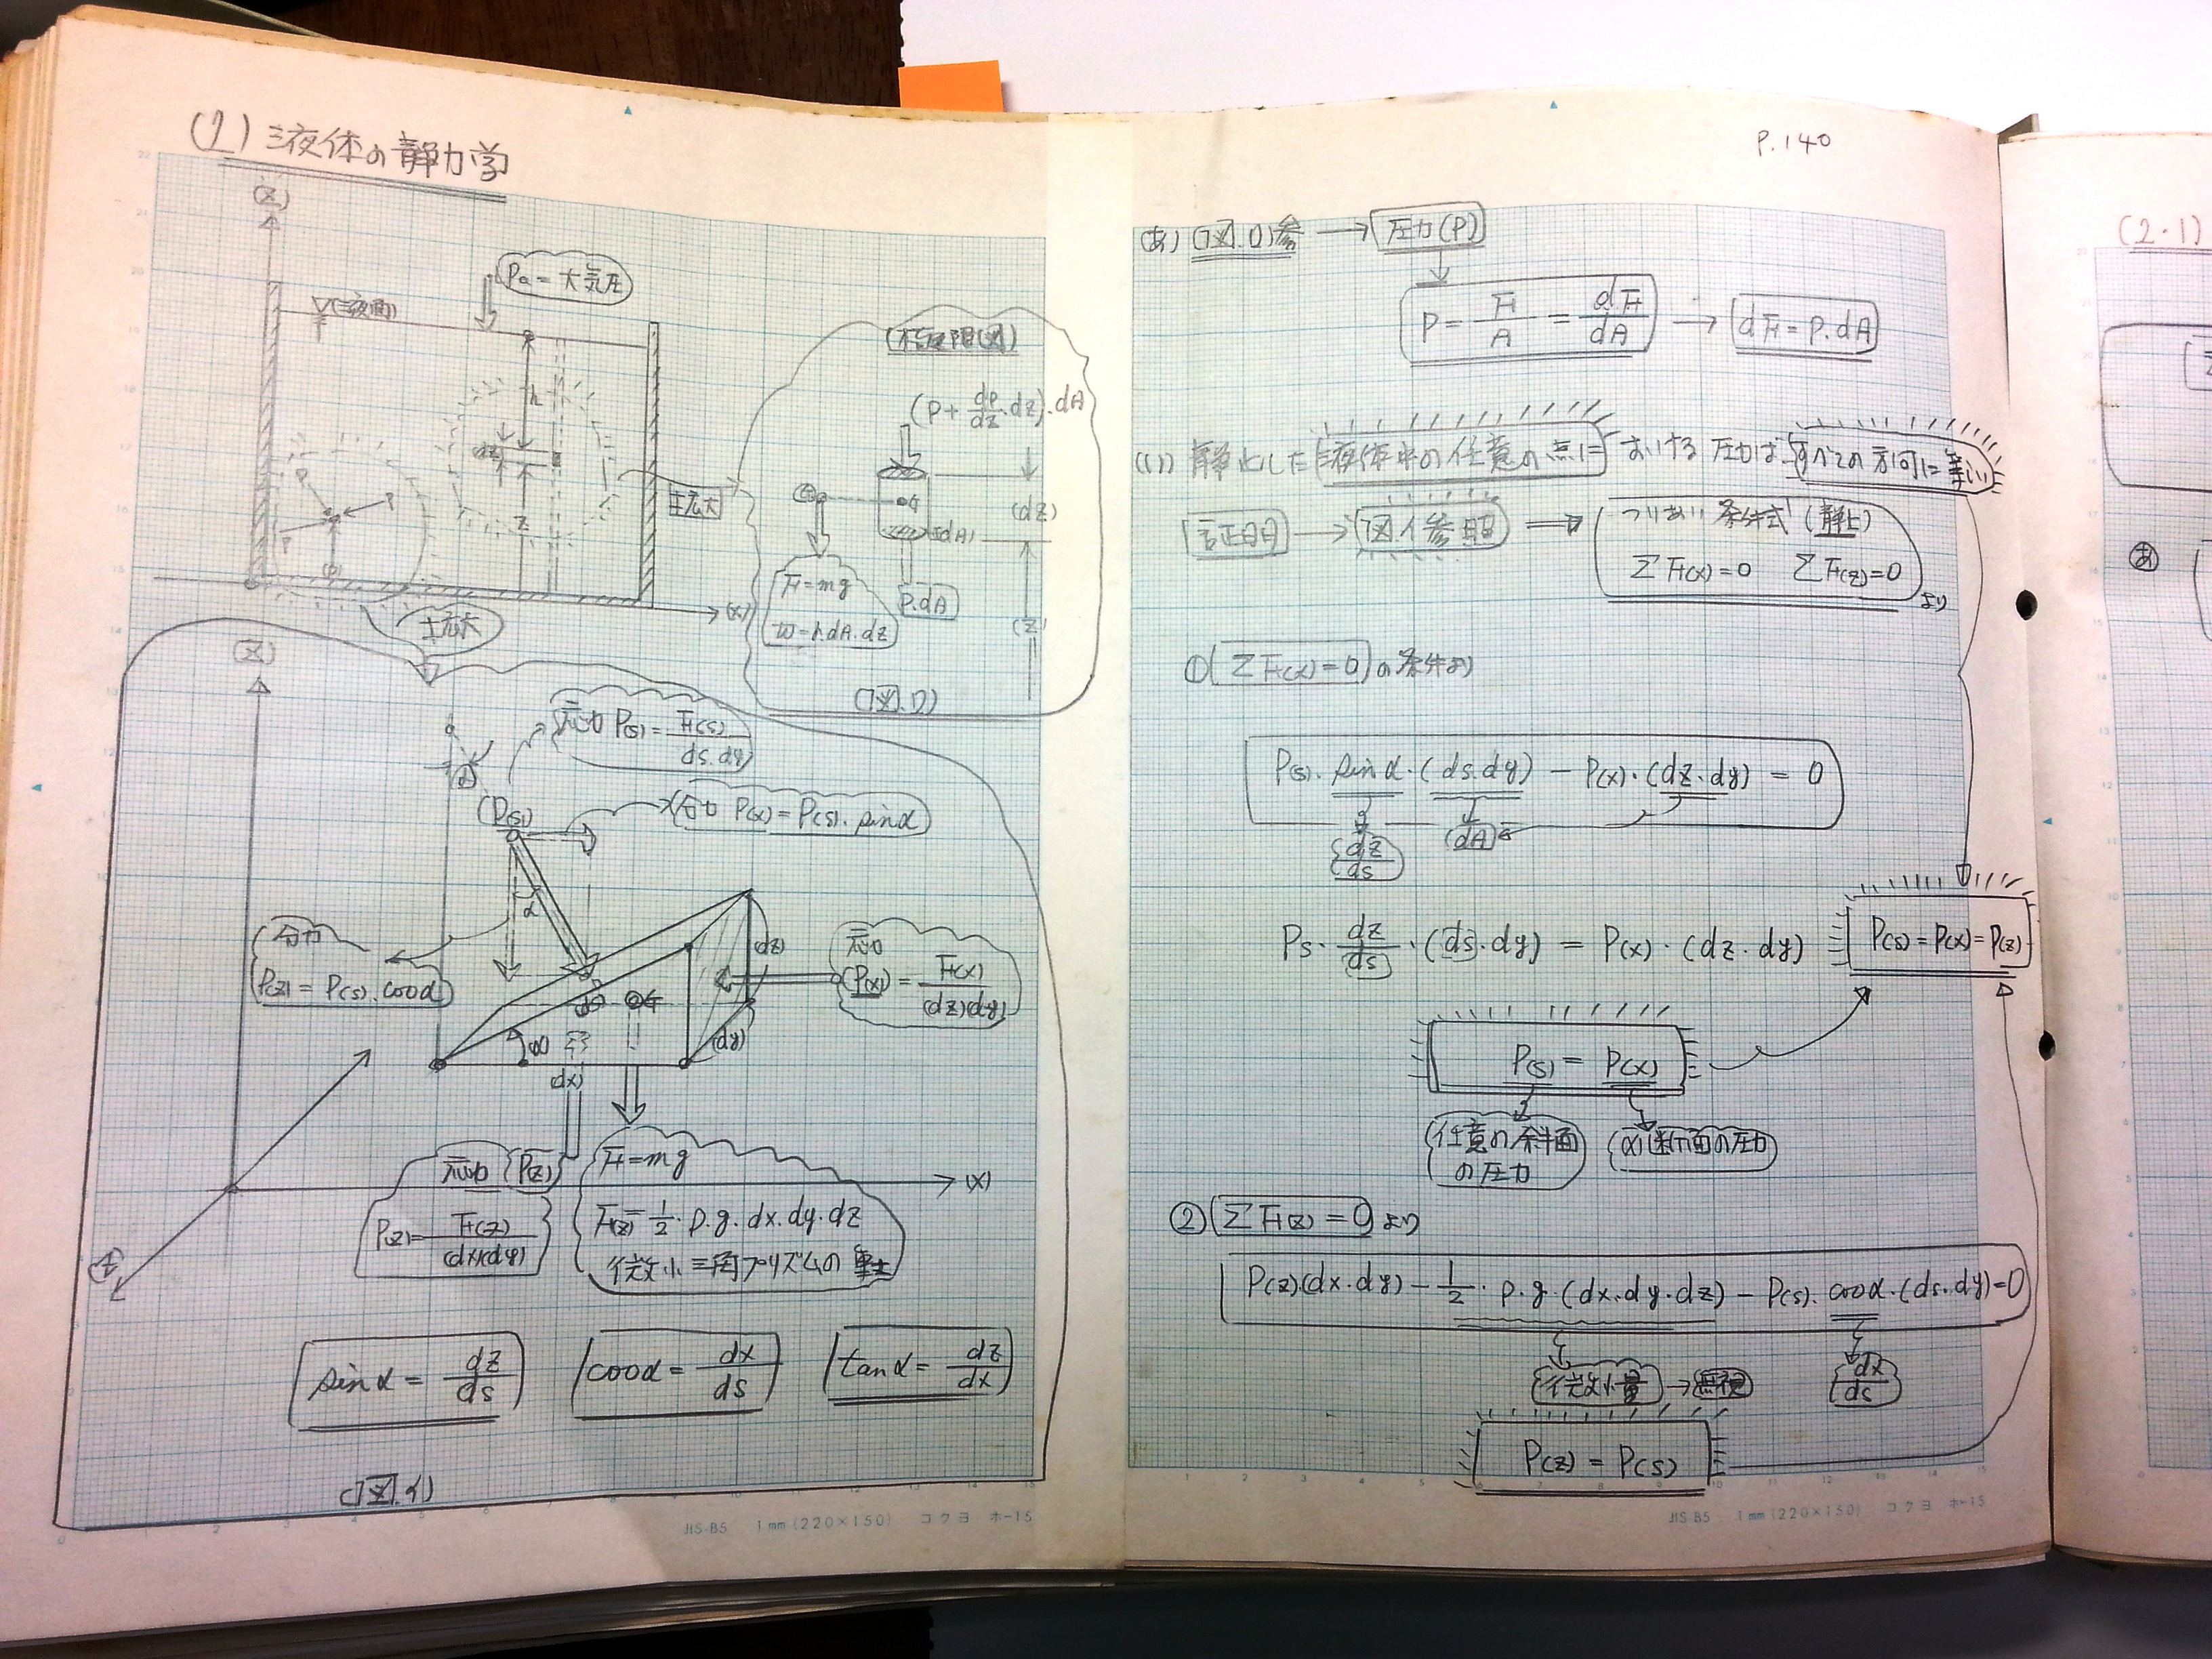 (1) 液体の静力学
(Z)
Pa = 大気圧
(液面)
h
dz
Z
P
P
(P)
(X)
拡大
拡大
(P + dp/dz・dz)・dA
G
(dz)
(dA)
F = mg
P.dA
(Z)
(図.1)
(Z)
P(s) = F(s)/ds.dy
α
(P(s))
分力 P(x) = P(s)・sinα
α
分力
P(z) = P(s)・cosα
(dz)
G
P(x) = F(x)/(dz)(dy)
(dy)
(dx)
(P(z))
P(z) = F(z)/(dx)(dy)
F = mg
F(z) = 1/2・ρ.g.dx.dy.dz
微小三角プリズムの重量
(X)
sinα = dz/ds
cosα = dx/ds
tanα = dz/dx
(図.イ)
JIS-B5 1mm (220×150) コクヨ ホ-15
P.140
(あ) (図.1)参 → 圧力(P)
P = F/A = dF/dA → dF = P.dA
(い) 静止した液体中の任意の点における圧力はすべての方向に等しい
証明 → 図イ参照 ⇒ つりあい条件式 (静止)
ΣF(x)=0 ΣF(z)=0
より
① ΣF(x)=0 の条件より
P(s)・sinα・(ds.dy) − P(x)・(dz.dy) = 0
dz/ds
(dA)
Ps・dz/ds・(ds.dy) = P(x)・(dz.dy)
P(s) = P(x) = P(z)
P(s) = P(x)
任意の斜面
の圧力
(x)断面の圧力
② ΣF(z) = 0 より
P(z)(dx.dy) − 1/2・ρ.g.(dx.dy.dz) − P(s)・cosα・(ds.dy) = 0
微小量 → 無視
dx/ds
P(z) = P(s)
JIS-B5 1mm (220×150) コクヨ ホ-15
(2.1)
あ